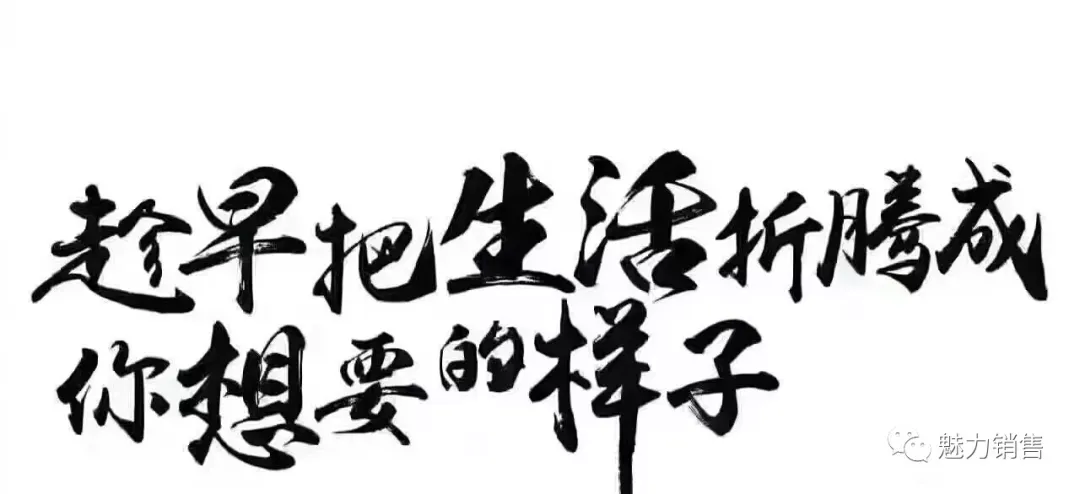 趁早把生活折腾成
你想要的样子
魅力销售